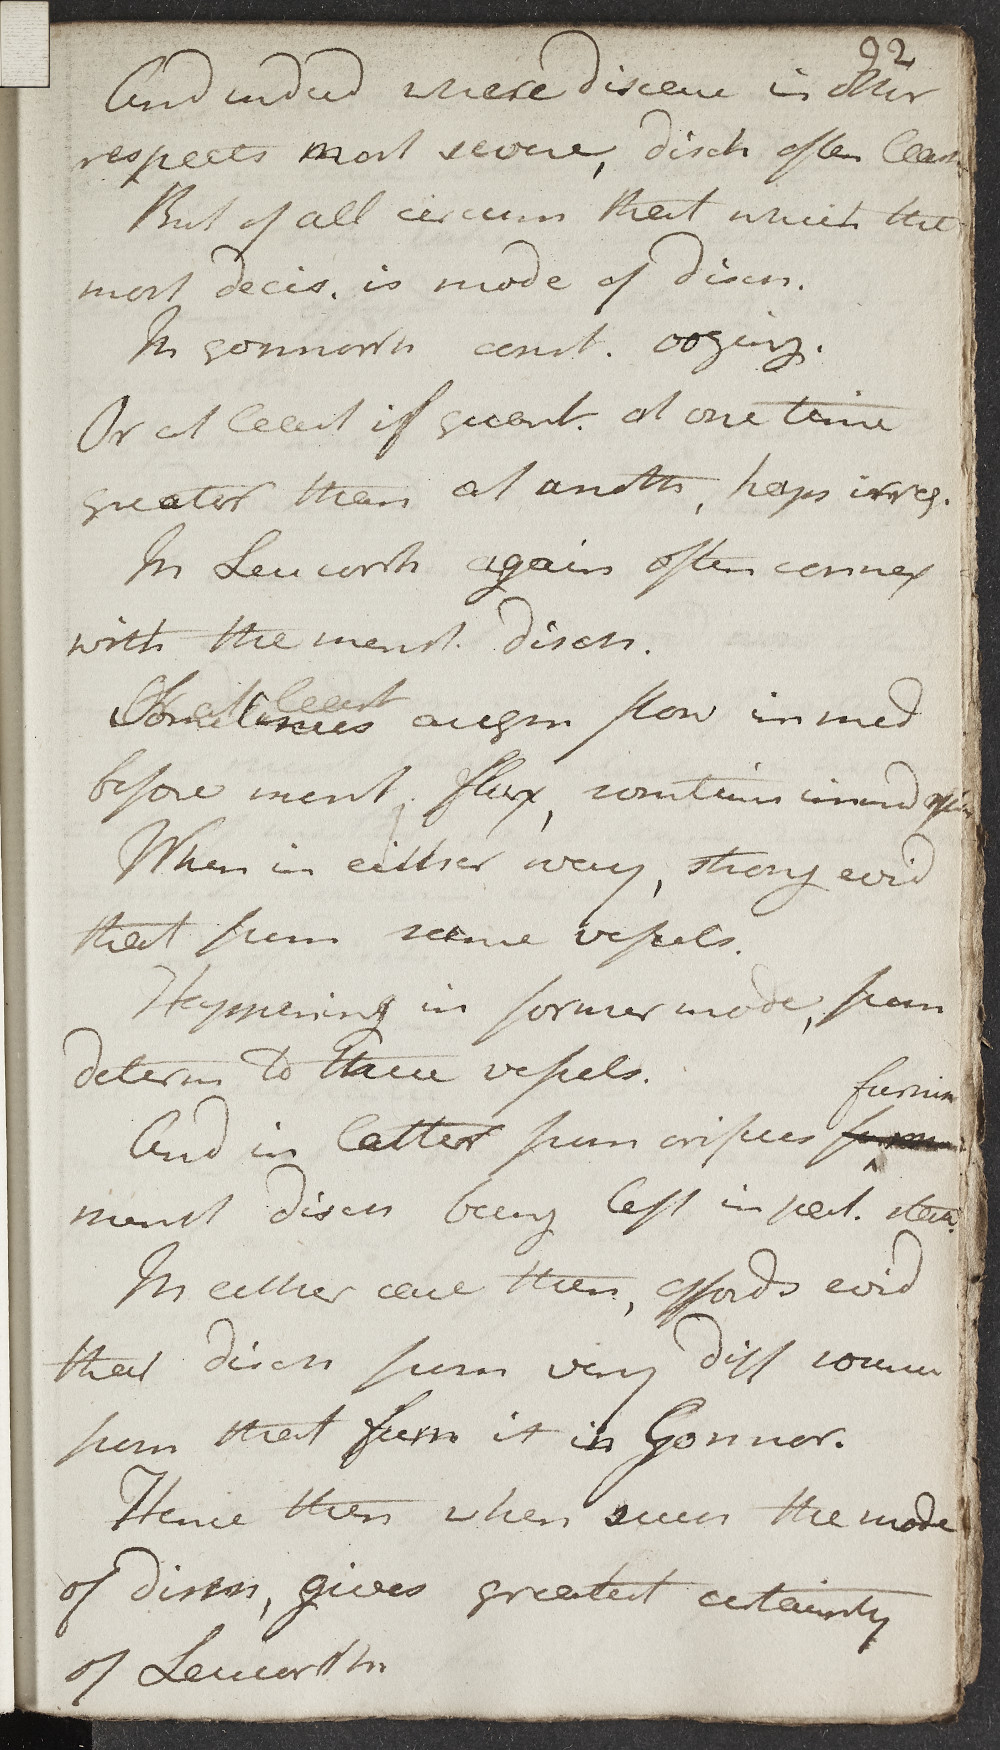 92
And indeed where disease in other
respects most severe, disch often least
But of all circum that which the
most decis. is mode of disch.
In gonnorrh const. oozing.
Or at least if quant. at one time
greater than at anoth, haps irreg.
In Leucorrh again often connex
with the menst. disch.
Or at least
Sometimes augm flow immed
before menst. flux, sometimes immed after
When in either way, strong evid
that from same vessels.
Happening in former mode, from
determ to these vessels.
furnish
And in latter from orifices
menst disch being left in pat. state.
In either case then, affords evid
that disch from very diff source
from that furn it in Gonnor.
Hence then when seen the mode
of disch, gives greatest certainty
of Leucorrh